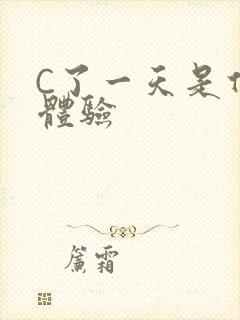 C了一天是
體驗
簾霜